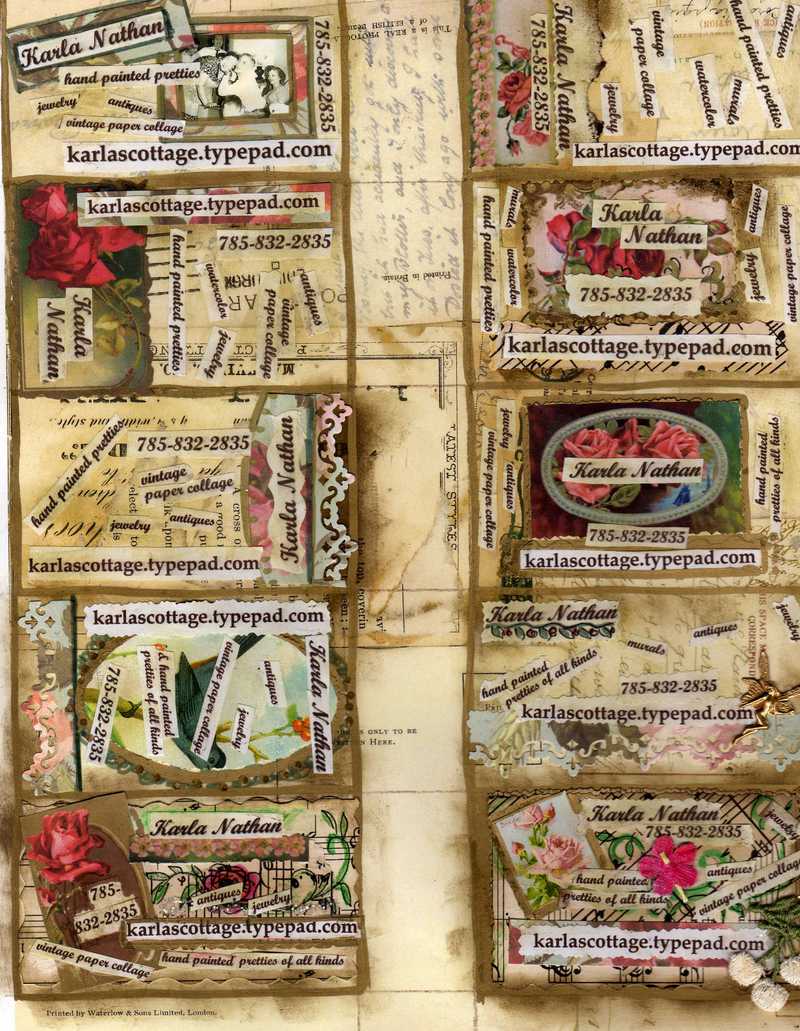 Karla Nathan
hand painted pretties
jewelry
antiques
vintage paper collage
785-832-2835
karlascottage.typepad.com
This is a REAL PHOTOG
of a BRITISH Beau
785-832-2835
Karla Nathan
jewelry
vintage
paper collage
watercolor
murals
hand painted pretties
antiques
karlascottage.typepad.com
karlascottage.typepad.com
785-832-2835
Karla
Nathan
hand painted pretties
watercolor
jewelry
vintage
paper collage
antiques
Printed in Britain.
hand painted pretties
murals
watercolor
Karla
Nathan
785-832-2835
antiques
jewelry
vintage paper collage
karlascottage.typepad.com
hand painted pretties
785-832-2835
vintage
paper collage
jewelry
antiques
Karla Nathan
karlascottage.typepad.com
LATEST STYLES
jewelry
antiques
vintage paper collage
Karla Nathan
hand painted
pretties of all kinds
785-832-2835
karlascottage.typepad.com
karlascottage.typepad.com
785-832-2835
& hand painted
pretties of all kinds
vintage paper collage
jewelry
antiques
Karla Nathan
IS ONLY TO BE
Here.
Karla Nathan
hand painted
pretties of all kinds
murals
antiques
jewelry
785-832-2835
karlascottage.typepad.com
Karla Nathan
785-
832-2835
antiques
jewelry
karlascottage.typepad.com
vintage paper collage
hand painted pretties of all kinds
Karla Nathan
785-832-2835
jewelry
hand painted
pretties of all kinds
antiques
vintage paper collage
karlascottage.typepad.com
Printed by Waterlow & Sons Limited, London.